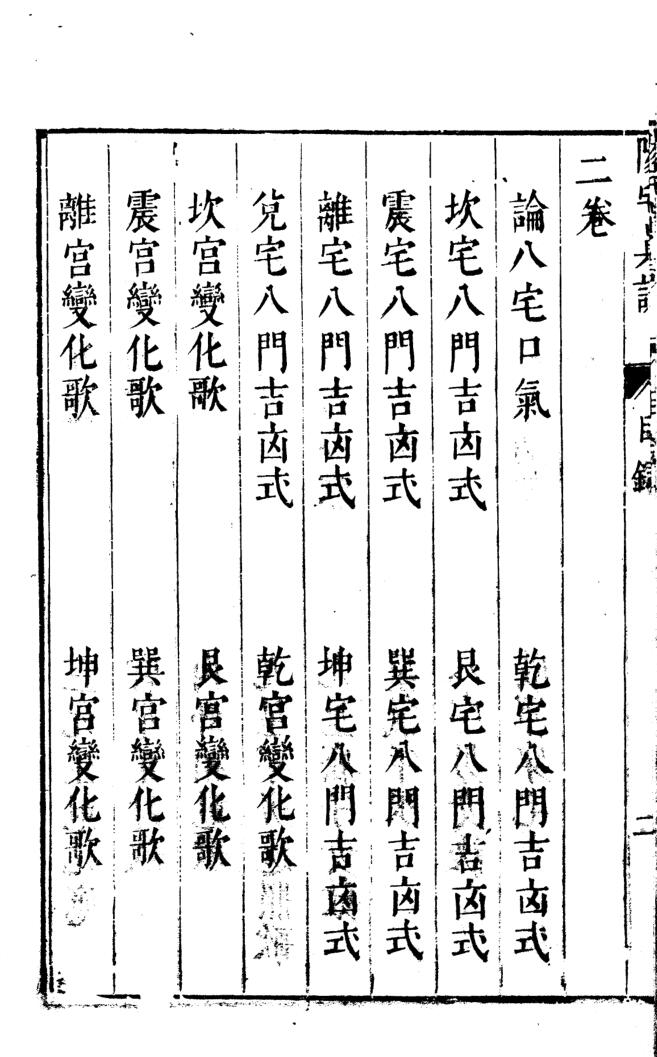 二卷
論八宅口氣　乾宅八門吉凶式
坎宅八門吉凶式　艮宅八門吉凶式
震宅八門吉凶式　巽宅八門吉凶式
離宅八門吉凶式　坤宅八門吉凶式
兌宅八門吉凶式　乾宮變化歌
坎宮變化歌　艮宮變化歌
震宮變化歌　巽宮變化歌
離宮變化歌　坤宮變化歌
目錄
二